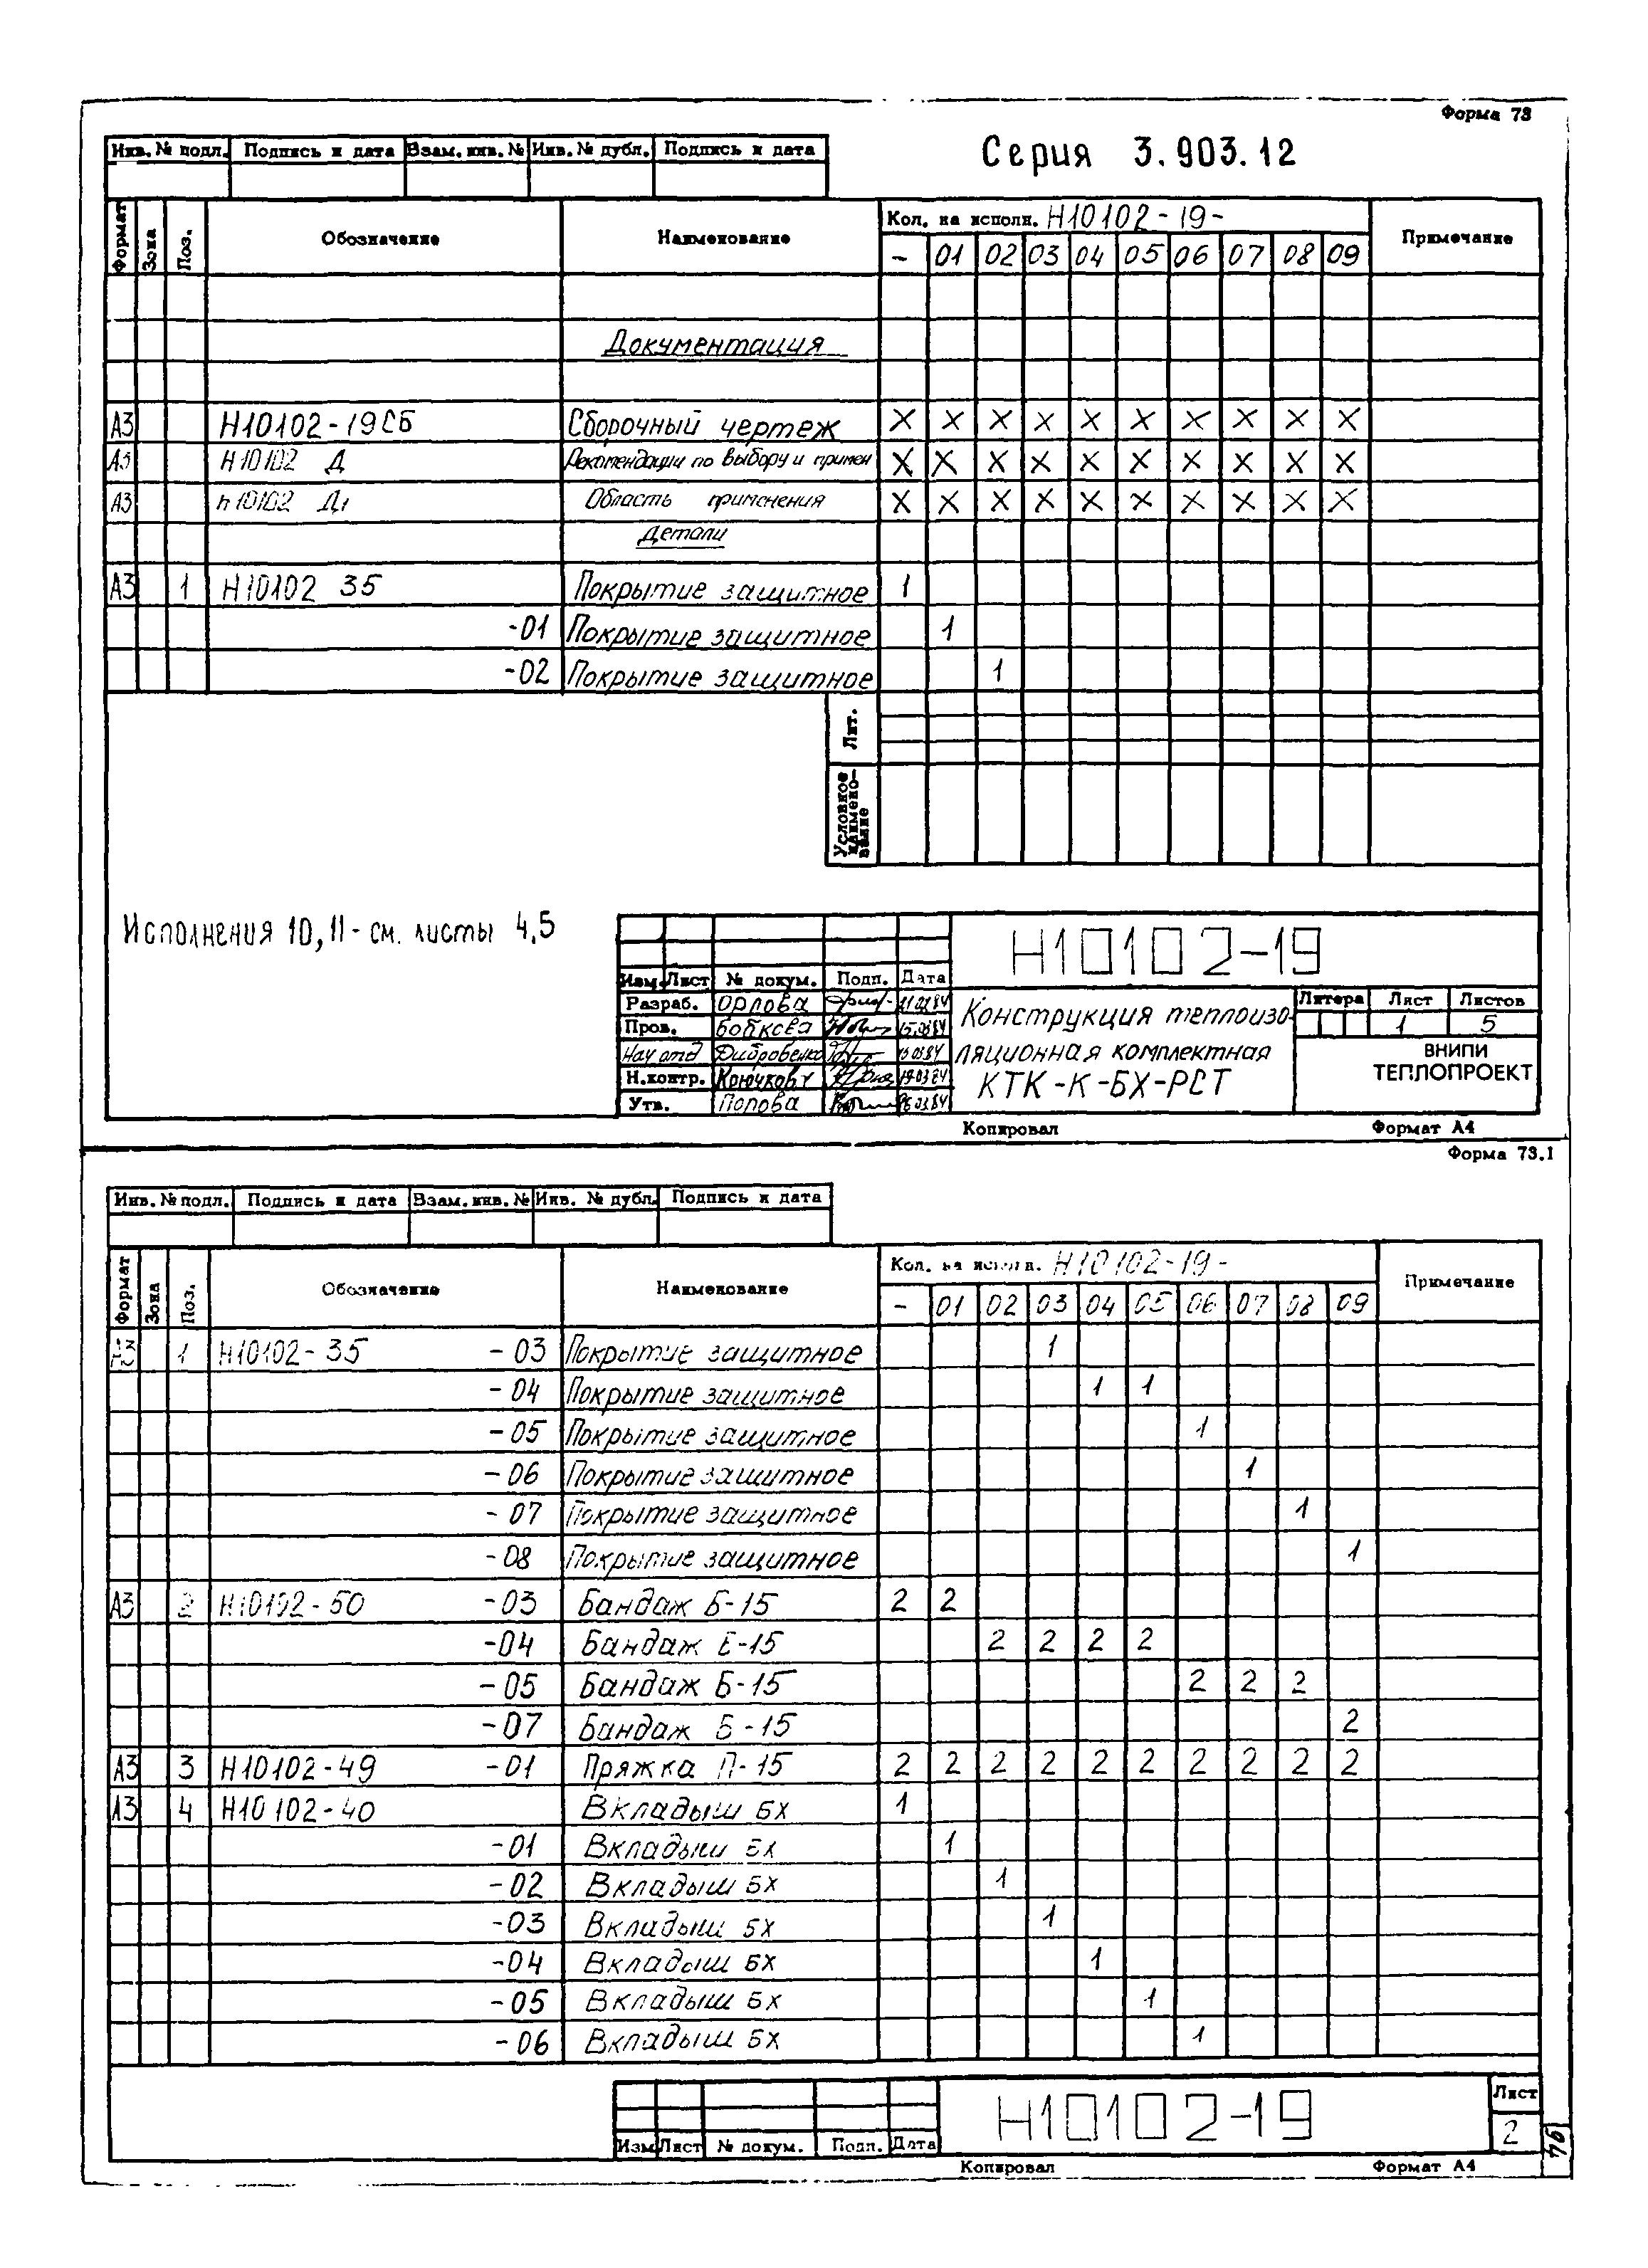 Форма 73
Серия 3.903.12
Инв. № подл. Подпись и дата Взам. инв. № Инв. № дубл. Подпись и дата
Формат Зона Поз. Обозначение Наименование Кол. на исполн. Н10102-19- Примечание
- 01 02 03 04 05 06 07 08 09
Документация
А3 Н10102-19СБ Сборочный чертеж X X X X X X X X X X
А3 Н10102 Д Рекомендации по выбору и примен X X X X X X X X X X
А3 Н10102 Д1 Область применения X X X X X X X X X X
Детали
А3 1 Н10102 35 Покрытие защитное 1
-01 Покрытие защитное 1
-02 Покрытие защитное 1
Лит.
Условное наименование
Исполнения 10, 11 - см. листы 4,5
Н10102-19
Изм. Лист № докум. Подп. Дата
Разраб. Орлова
Пров. Бобкова
Нач отд
Н.контр. Крючкович
Утв. Попова
Конструкция теплоизо-
ляционная комплектная
КТК-К-БХ-РСТ
Литера Лист Листов
1 5
ВНИПИ
ТЕПЛОПРОЕКТ
Копировал Формат А4
Форма 73.1
Инв. № подл. Подпись и дата Взам. инв. № Инв. № дубл. Подпись и дата
Формат Зона Поз. Обозначение Наименование Кол. на исполн. Н10102-19- Примечание
- 01 02 03 04 05 06 07 08 09
А3 1 Н10102-35 -03 Покрытие защитное 1
-04 Покрытие защитное 1 1
-05 Покрытие защитное 1
-06 Покрытие защитное 1
-07 Покрытие защитное 1
-08 Покрытие защитное 1
А3 2 Н10102-50 -03 Бандаж Б-15 2 2
-04 Бандаж Б-15 2 2 2 2
-05 Бандаж Б-15 2 2 2
-07 Бандаж Б-15 2
А3 3 Н10102-49 -01 Пряжка П-15 2 2 2 2 2 2 2 2 2 2
А3 4 Н10102-40 Вкладыш БХ 1
-01 Вкладыш БХ 1
-02 Вкладыш БХ 1
-03 Вкладыш БХ 1
-04 Вкладыш БХ 1
-05 Вкладыш БХ 1
-06 Вкладыш БХ 1
Н10102-19
Изм Лист № докум. Подп. Дата
Лист
2
Копировал Формат А4